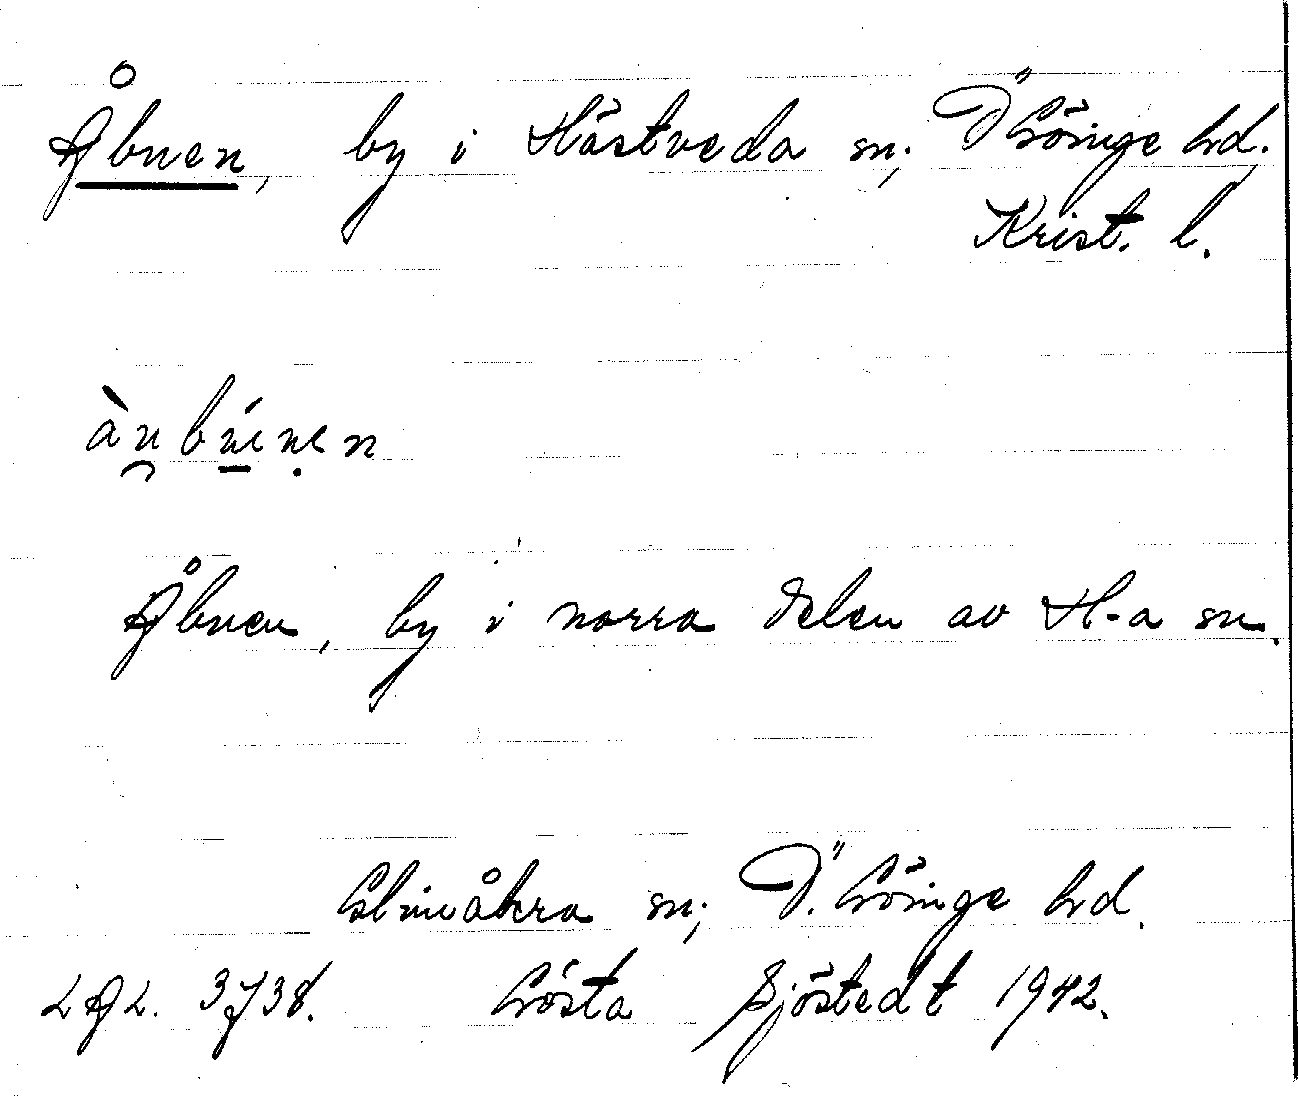 Åbuen, by i Hästveda sn; Ö Göinge hd.
Krist. l.
Åbuen, by i norra delen av H-a sn.
Glimåkra sn; Ö. Göinge hd.
LAL. 3738. Gösta Sjöstedt 1942.